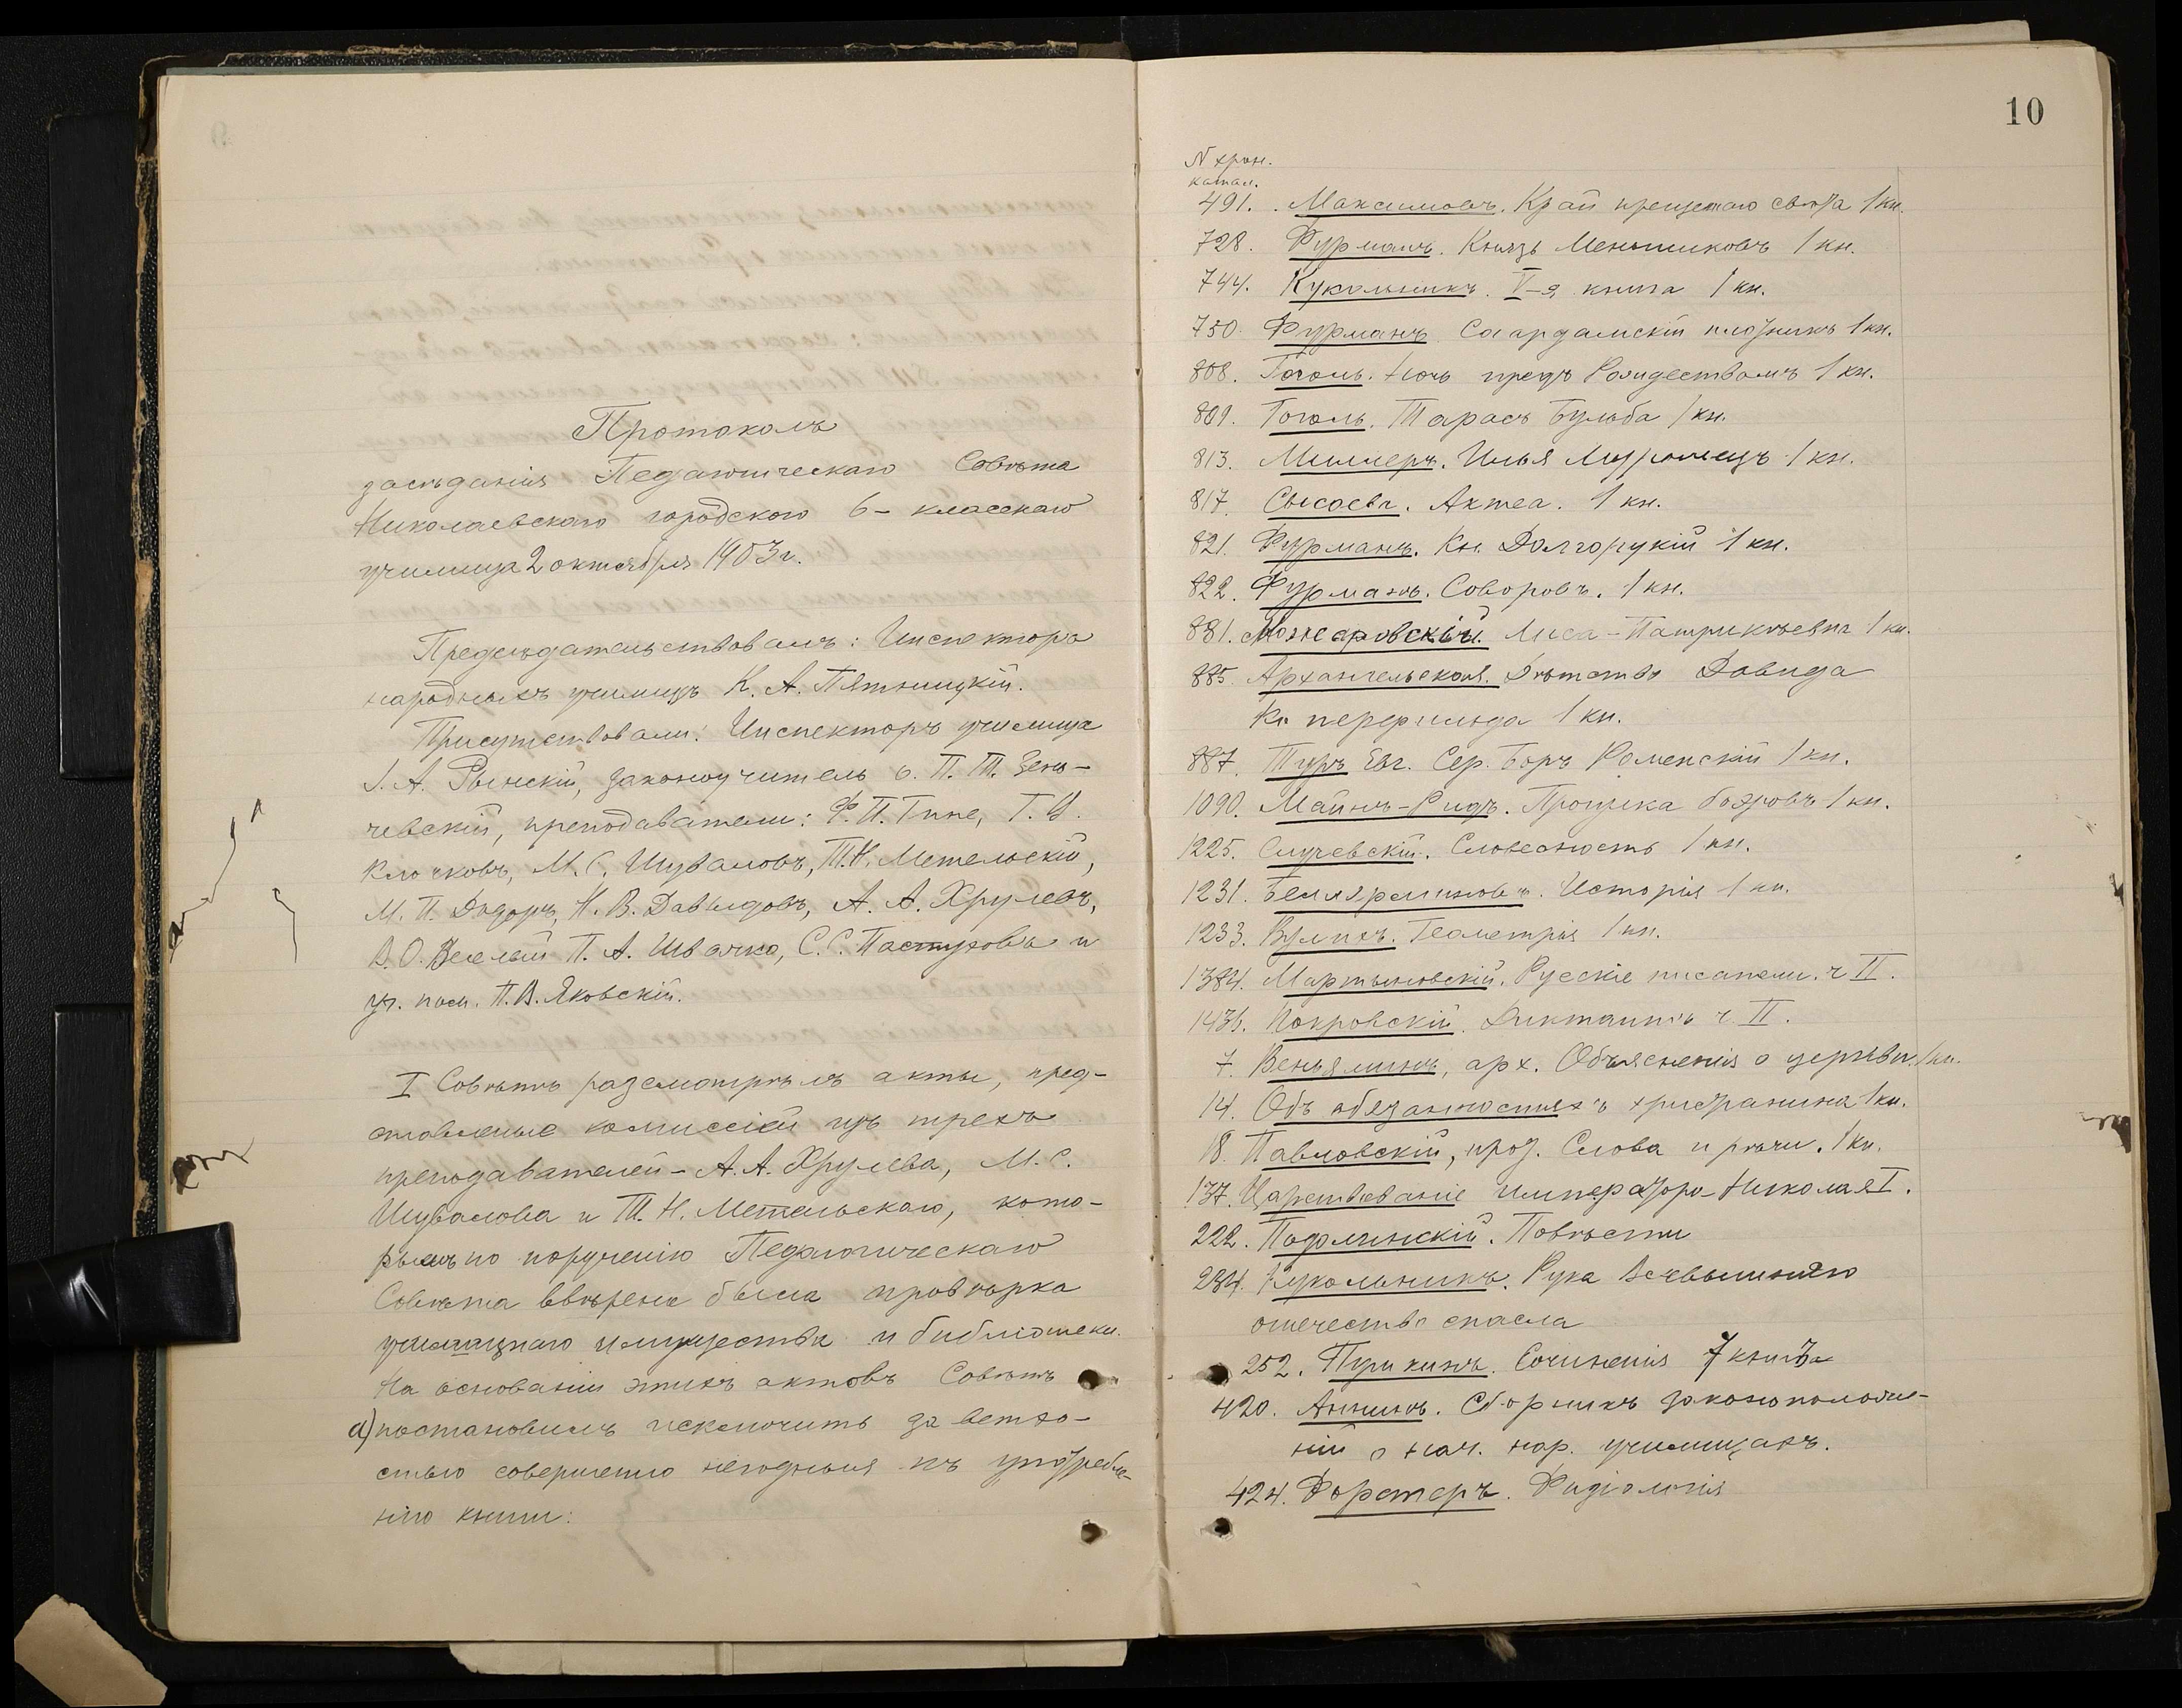 Протоколъ
засѣданія Педагогическаго Совѣта
Николаевскаго городского 6-класснаго
училища 2 октября 1903 г.
Предсѣдательствовалъ: Инспекторъ
народныхъ училищъ К. А. Пятницкій.
Присутствовали: Инспекторъ училища
І. А. Рынскій, законоучитель о. П. Т. Зень-
чевскій, преподаватели: Ф. П. Гппе,
Клочковъ, М. С. Шуваловъ, Т. Н. Метельскій,
М. П. Н. В. Давыдовъ, А. А. Хрулевъ,
В. О. Веселый П. А. Швачка, С. С. Пастуховъ и
уч. пом. П. В. Яковскій.
I Совѣтъ разсмотрѣлъ акты, пред-
ставленные комиссіей изъ трехъ
преподавателей - А. А. Хрулева, М. С.
Шувалова и Т. Н. Метельскаго, кото-
рымъ по порученію Педагогическаго
Совѣта ввѣрена была провѣрка
училищнаго имущества и библіотеки.
На основаніи этихъ актовъ Совѣтъ
а) постановилъ исключить за ветхо-
стью совершенно негодныя къ употребле-
нію книги:
10
N хрон.
катал.
491. Максимовъ. Край крещенаго свѣта 1 кн.
728. Фурманъ. Князь Меньшиковъ 1 кн.
744. Кукольникъ. V-я книга 1 кн.
750. Фурманъ Саардамскій плотникъ 1 кн.
808. Гоголь. Ночь предъ Рождествомъ 1 кн.
809. Гоголь. Тарасъ Бульба 1 кн.
813. Миллеръ. Илья Муромецъ 1 кн.
817. Сысоева. Актеа. 1 кн.
821. Фурманъ. Кн. Долгорукій 1 кн.
822. Фурманъ. Соворовъ. 1 кн.
881. Можаровскій. Лиса-Патрикѣевна 1 кн.
885. Архангельская. Дѣтство Давида
Копперфильда 1 кн.
887. Туръ Евг. Сер. Боръ Роменскій 1 кн.
1090. Майнъ-Ридъ. Прогулка боэровъ 1 кн.
1225. Случевскій. Словесность 1 кн.
1231. Беллярминовъ. Исторія 1 кн.
1233. Вулихъ. Геометрія 1 кн.
1384. Мартыновскій. Русскіе писатели. ч II.
1436. Покровскій. Диктантъ ч. II.
7. Веньяминъ, арх. Объясненія о церкви. 1 кн.
14. Объ обязанностяхъ христіанина 1 кн.
18. Павловскій, прот. Слова и рѣчи. 1 кн.
137. Царствованіе императора Николая I.
222. Подолинскій. Повѣсти
234. Кукольникъ. Рука Всевышняго
отечество спасла
252. Пушкинъ. Сочиненія 7 книгъ
420. Аннинъ. Сборникъ законоположе-
ній о нач. нар. училищахъ.
424. Форстеръ. Физіологія